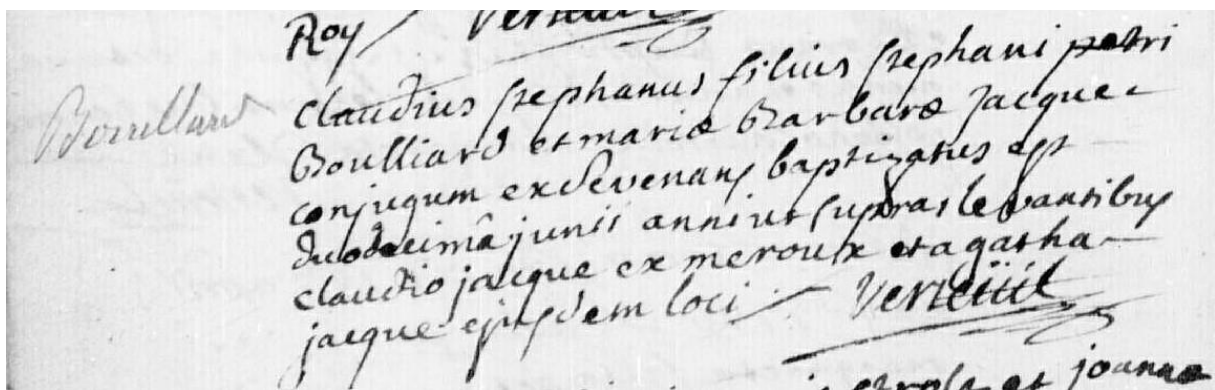 Roy
Bouillard
Claudius stephanus filius stephani petri
Boulliard et mariæ Barbaræ jacque
conjugum ex devenans baptizatus est
duodecimâ junii anni ut supra levantibus
claudio jacque ex meroux et agatha
jacque ejusdem loci
et joanna